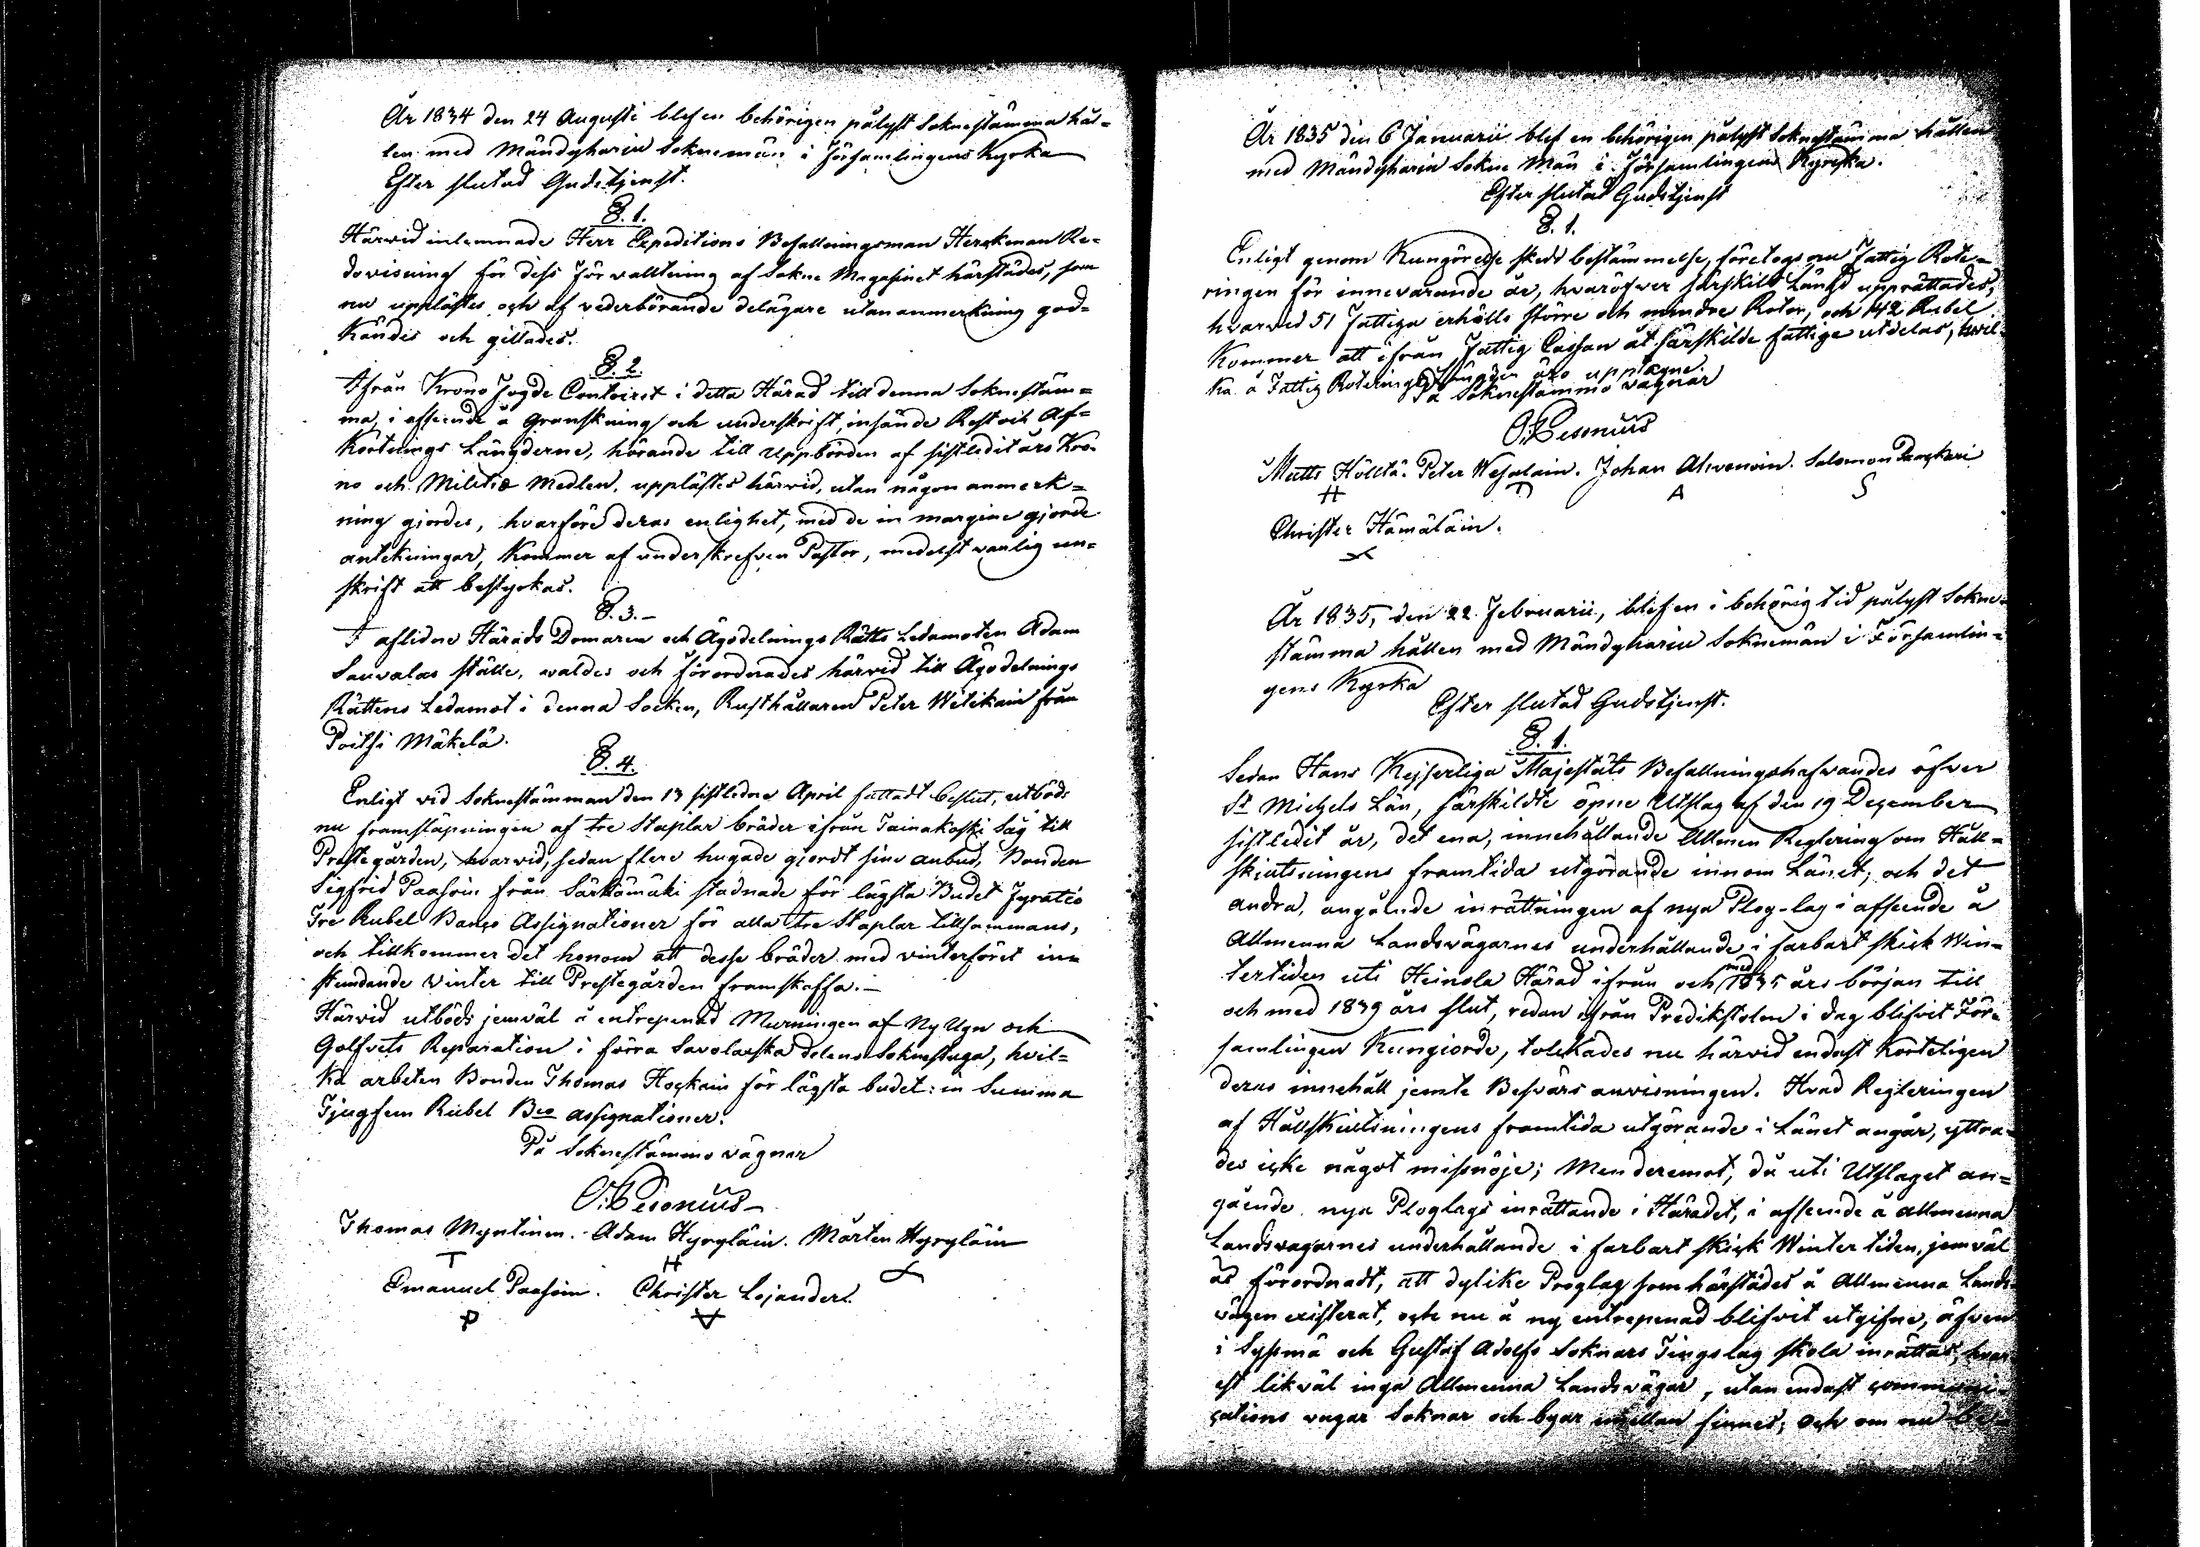 År 1834 den 24 Augusti blef en behörigen pålyst Soknestämma hål-
len med Mändgharin Soknemän i Församlingens Kyrka
Efter slutad Gudstjenst.
§. 1.
Härwid inlemnade Herr Expeditions Befallningsman Herckman Re-
dovisning för dess Förvalltning af Sokne Magasinet härstädes, som
nu upplästes och af vederbörande delägare utan anmerkning god-
kändes och gillades.
§. 2.
Ifrån Krono Fogde Contoiret i detta Härad till denna Soknestäm-
ma, i afseende å Granskning och underskrift, insände Rest och Af-
kortnings Längderne, hörande till Uppbörden af sistledit års Kro-
no och Militiæ Medlen, upplästes härvid, utan någon anmerk-
ning gjordes, hvarföre deras enlighet, med de in margine gjorde
antekningar, kommer af underskrefven Pastor, medelst vanlig un-
skrift att bestyrkas.
§. 3.-
I aflidne Härads Domaren och Ägodelnings Rätts Ledamoten Adam
Sauvalas ställe, valdes och förordnades härvid till Ägodelnings
Rättens Ledamot i denna Socken, Rusthållaren Peter Wetikain från
Poitsi Mäkelä.
§. 4.
Enligt vid Soknestämman den 13 sistledne April fattadt beslut, utböds
nu framsläpningen af tre Staplar bräder ifrån Tainakoski Såg till
Prestegården, hvarvid, sedan flere hugade giordt sine anbud, Bonden
Sigfrid Paasoin från Särkämäki stadnade för lägsta Budet Fyratio
Tre Rubel Banco Assignationer för alla tre Staplar tillsammans,
och tillkommer det honom att desse bräder med vinterföret in-
stundande Vinter till Prestegården framskaffa.-
Härvid utböds jemväl å entrepenad Murningen af Ny Ugn och
Golfvets Reparation i förra Savolaxska delens Soknestuga, hvil-
ka arbeten Bonden Thomas Hockain för lägsta budet: in Summa
Tjugfem Rubel Bco assignationer.
På Soknestämmo vägnar
O. Pesonius
Thomas Myntinen. Adam Hyryläin. Mårten Hyryläin
T H
Emanuel Paasoin. Christer Lojander.
P
År 1835 den 6 Januarii blef en behörigen pålyst Soknestämma hållen
med Mändgharin Sokne Män i Församlingens Kyrka.
Efter slutad Gudstjenst
§. 1.
Enligt genom Kungörelse skedd bestämmelse, företogs nu Fattig Rote-
ringen för innevarande år, hvaröfwer särskild Längd upprättades,
hvarvid 51 Fattiga erhölls större och mindre Rotor, och 142 Rubel
kommer att ifrån Fattig Cassan åt särskilde fattige utdelas, hvil-
ka å Fattig Roterings Längden äro upptagne.
På Soknestämmo vägnar
O. Pesonius
Matts Hölltä. Peter Wesalain. Johan Ahvenain. Salomon Paaskoi
H T A S
Christer Hämäläin.
År 1835, den 22 Februarii, blef en i behörig tid pålyst Sokne-
stämma hållen med Mändgharin Soknemän i Församlin-
gens Kyrka
Efter slutad Gudstjenst.
§. 1.
Sedan Hans Kejserliga Majestäts Befallningshafvandes öfver
St Michels Län, särskildte öpne Utslag af den 19 December
sistledit år, det ena, innehållande Allmen Reglering om Håll-
skjutsningens framtida utgörande innom Länet; och det
andra, angående inrättningen af nya Plog-lag i afseende å
Allmenna Landsvägarnes underhållande i farbart skick Win-
tertiden uti Heinola Härad ifrån och med 1835 års början till
och med 1839 års slut, redan ifrån Predikstolen i dag blifvit För-
samlingen Kungiorde, tolckades nu härvid endast korteligen
deras innehåll jemte Besvärs anvisningen. Hvad Regleringen
af Hållskjutsningens framtida utgörande i Länet angår, yttra-
des icke något missnöje; Men deremot, då uti Utslaget an-
gående nya Ploglags inrättande i Häradet, i afseende å allmenna
Landsvägarnes underhållande i farbart skick Winter tiden, jemväl
är förordnadt, att dylike Proglag som härstädes å Allmenna Lands-
vägen existerat, och nu å ny entrepenad blifvit utgifne, äfven
i Sysmä och Gustaf Adolfs Soknars Tingslag skola inrättas, hvar-
est likväl inga Allmenna Landsvägar, utan endast communi-
cations vägar Soknar och byar imellan finnes; och om nu